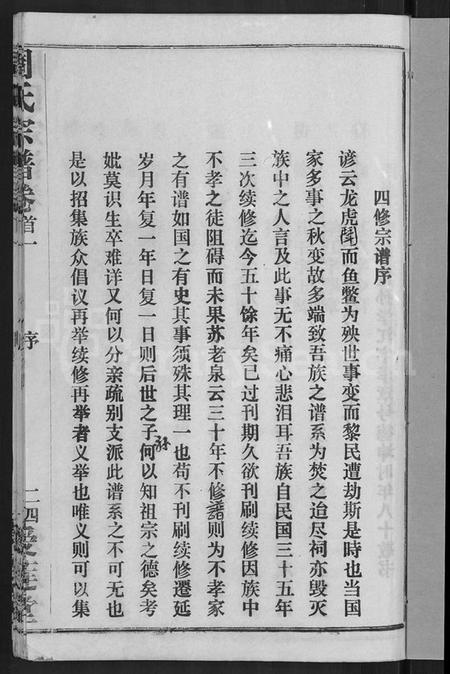 四修宗谱序
谚云龙虎鬪而鱼鳖为殃世事变而黎民遭劫斯是時也当国
家多事之秋变故多端致吾族之谱系为焚之迨尽祠亦毁灭
族中之人言及此事无不痛心悲泪耳吾族自民国三十五年
三次续修迄今五十馀年矣已过刊期久欲刊刷续修因族中
不孝之徒阻碍而未果苏老泉云三十年不修譜则为不孝家
之有谱如国之有史其事须殊其理一也苟不刊刷续修遷延
岁月年复一年日复一日则后世之子孙何以知祖宗之德矣考
妣莫识生卒难详又何以分亲疏别支派此谱系之不可无也
是以招集族众倡议再举续修再举者义举也唯义则可以集
周氏宗谱卷首一
序
二四爱莲堂